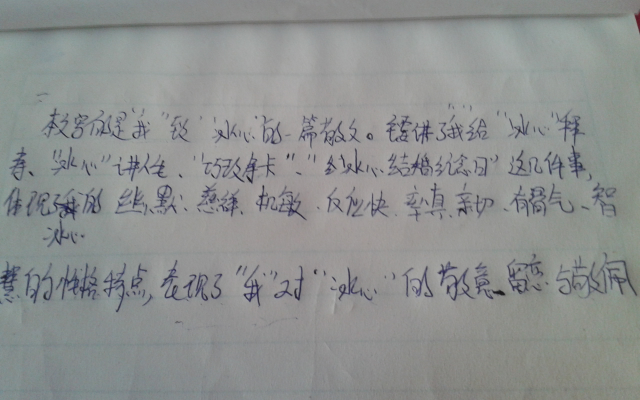 本文写的是"我"致"冰心"的一篇散文。主要讲了"我"给"冰心"拜
寿、"冰心"讲人生、"巧改寿卡"、"冰心结婚纪念日"这几件事,
体现了 的幽默、慈祥、机敏、反应快、率真、亲切、有骨气、智
冰心
慧的性格特点,表现了"我"对"冰心"的敬意、留恋与敬佩